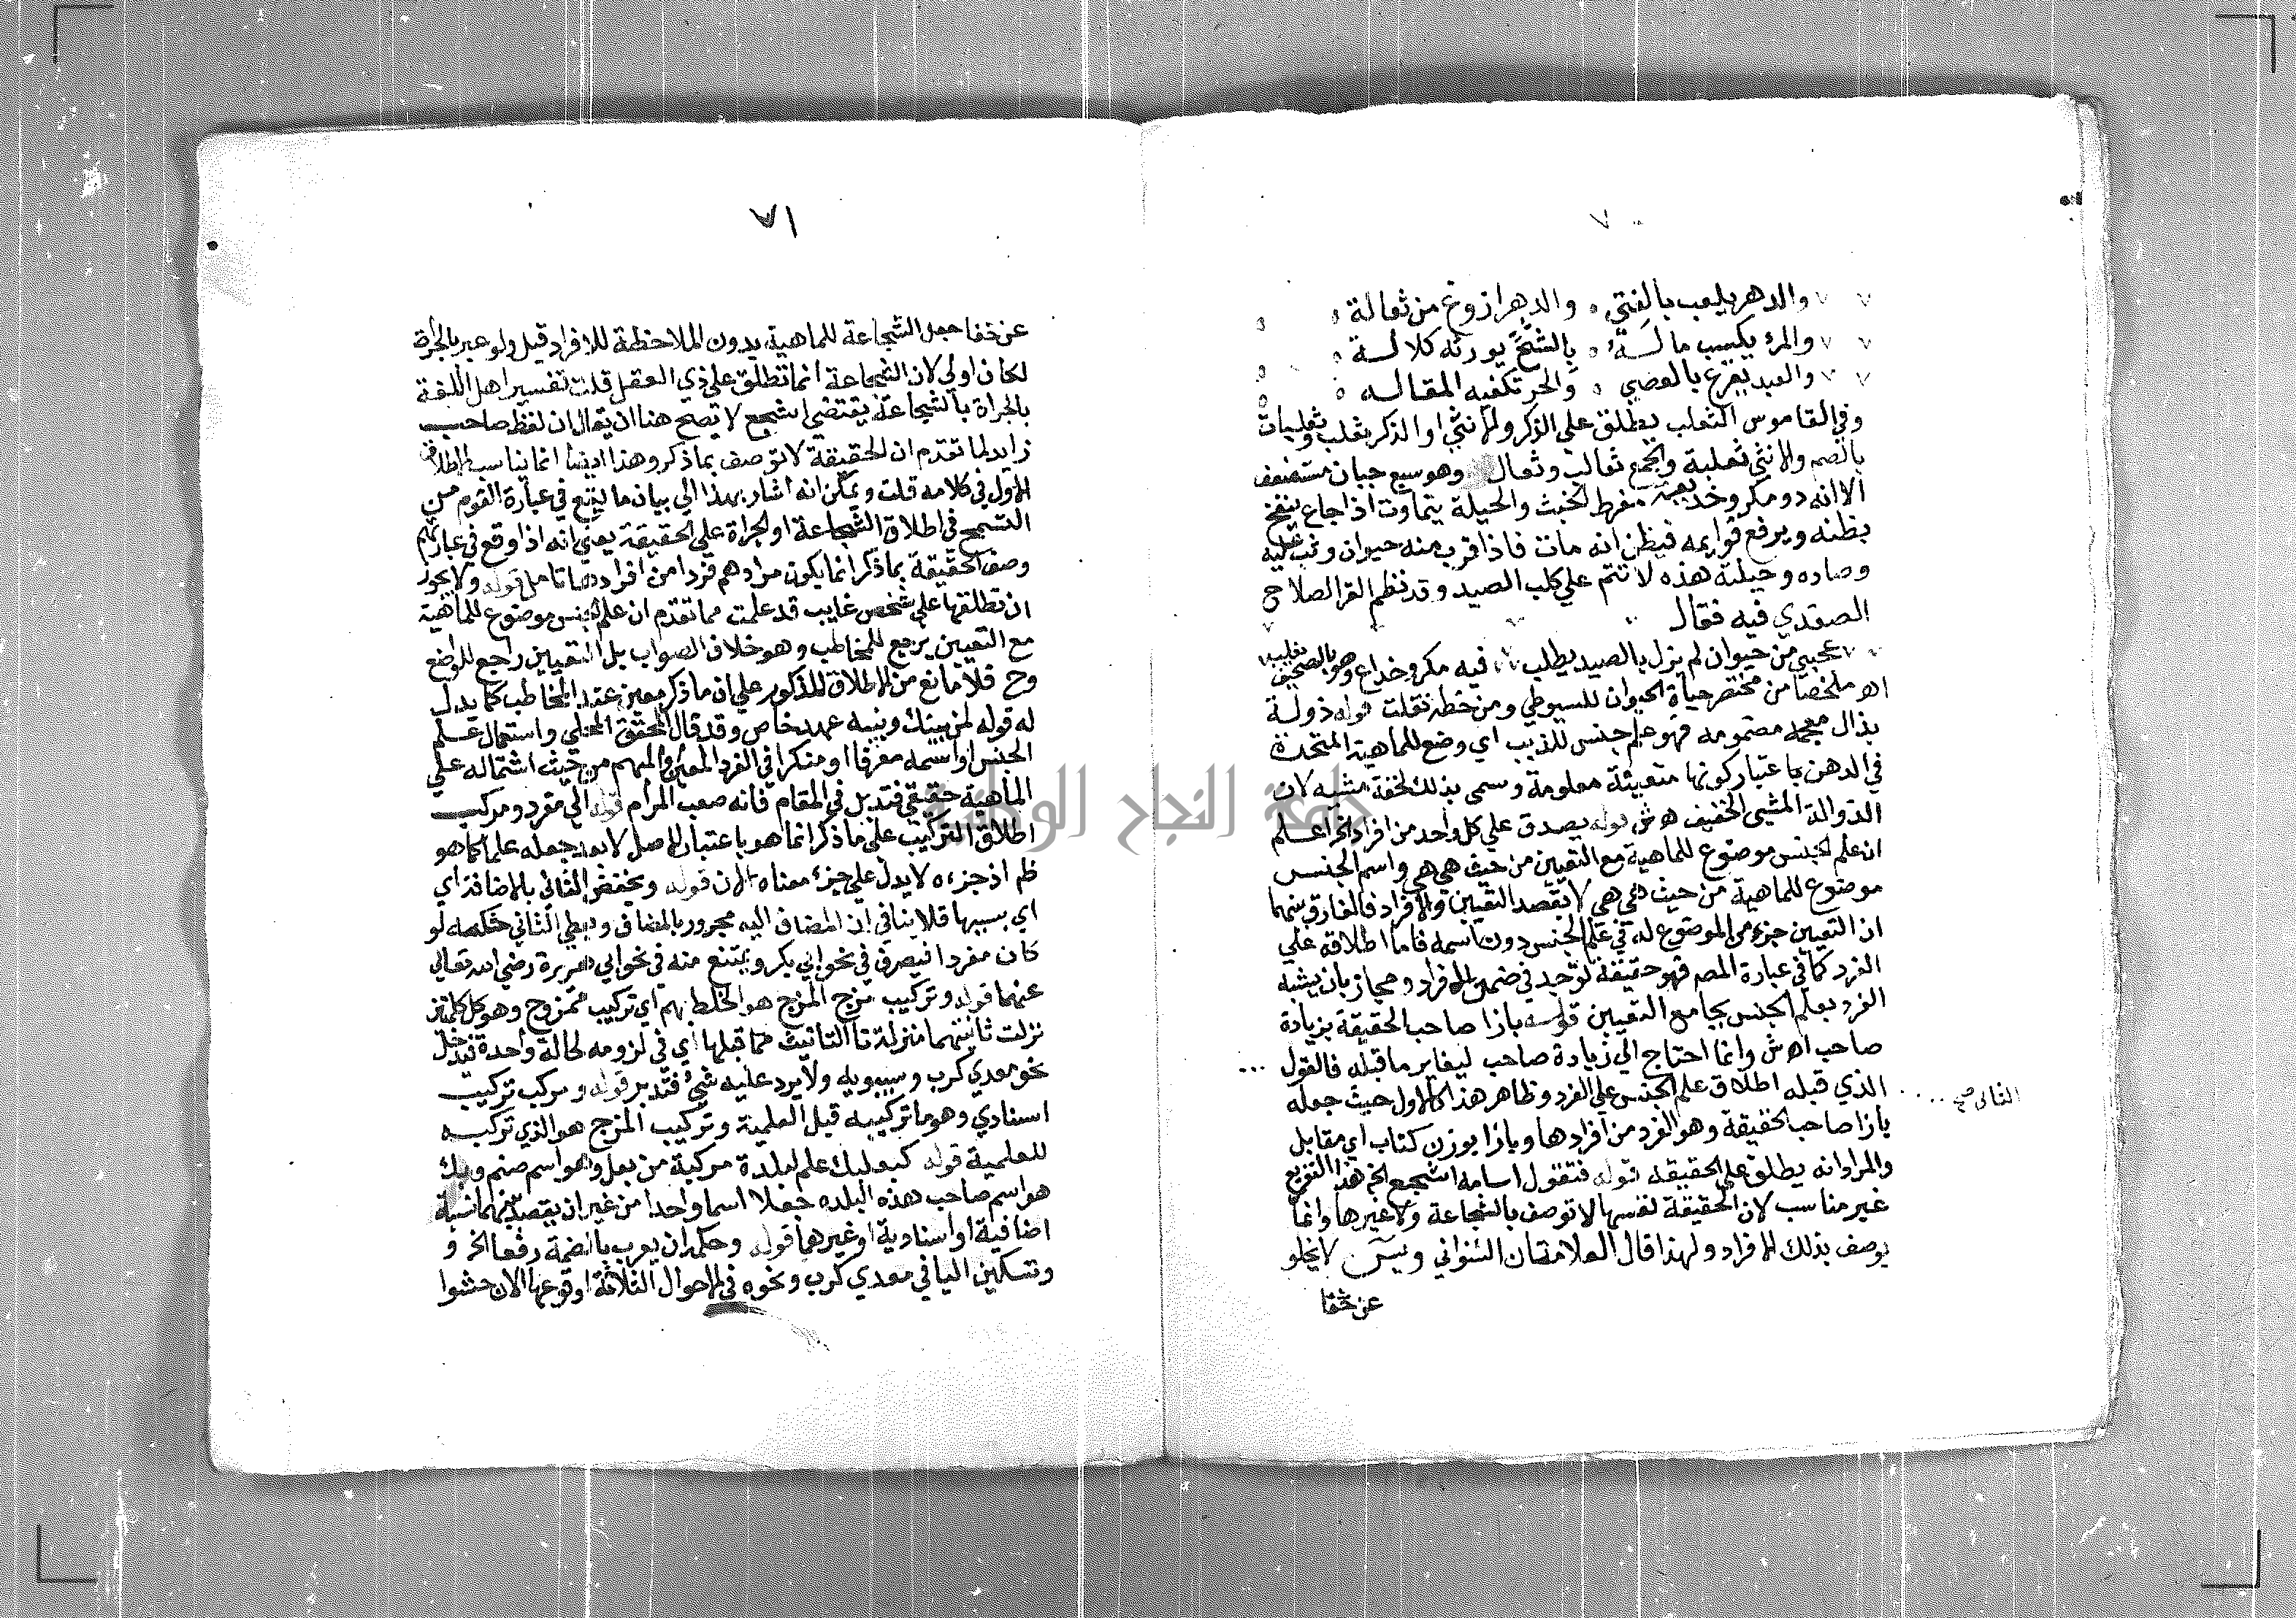 ٧٠
والدهر يلعب بالفتي ٥ والدهر ازوغ من ثعالة ٥
والمرء يكسب ماله ٥ بالشح يورثه كلالة ٥
والعبد يقرع بالعصي ٥ والحر تكفيه المقاله ٥
وفي القاموس الثعلب يطلق علي الذكر والانثي او الذكر ثعلب وثعلبان
بالضم والانثي ثعلبة والجمع ثعالب وثعال وهو سبع جبان مستضعف
الا انه ذو مكر وخديعة مفرط الخبث والحيلة يتماوت اذا جاع ينفخ
بطنه ويرفع قوايمه فيظن انه مات فاذا قرب منه حيوان وثب عليه
وصاده وحيلته هذه لا تتم علي كلب الصيد وقد نظم الصلاح
الصفدي فيه فقال
عجبي من حيوان لم يزل بالصيد يطلب فيه مكر وخداع وهو بالصحيف ثعلب
اه ملخصا من مختصر حياة الحيوان للسيوطي ومن خطه نقلت قوله ذوالة
بذال معجمة مضمومه فهو علم جنس للذيب اي وضع للماهية المتحدة
في الذهن باعتبار كونها متعينة معلومة وسمي بذلك لخفة مشيه لان
الذوالة المشي الخفيف اه ش قوله يصدق علي كل واحد من افراد الخ اعلم
ان علم الجنس موضوع للماهية مع التعيين من حيث هي هي واسم الجنس
موضوع للماهية من حيث هي هي لا بقصد التعيين والافراد فالفارق بينهما
ان التعيين جزء من الموضوع له في علم الجنس دون اسمه فاما اطلاقه علي
الفرد كما في عبارة المص فهو حقيقة لوجد في ضمن الافراد ومجاز بان يشبه
الفرد بعلم الجنس بجامع التعيين قوله بازا صاحب الحقيقة بزيادة
صاحب اه ش وانما احتاج الي زيادة صاحب ليغاير ما قبله فالقول
الذي قبله اطلاق علم الجنس علي الفرد وظاهر هذا كالاول حيث جعله
الثاني صح
بازا صاحب الحقيقة وهو الفرد من افرادها وبازا بوزن كتاب اي مقابل
والمراد انه يطلق علي الحقيقة قوله فتقول اسامة اشجع الخ هذا التفريع
غير مناسب لان الحقيقة لنفسها لا توصف بالشجاعة ولا غيرها وانما
يوصف بذلك الافراد ولهذا قال العلامتان الشنواني ويس لا يخلو
عن خفا
٧١
عن خفا جعل الشجاعة للماهية بدون الملاحظة للافراد قيل ولو عبر بالجراة
لكان اولي لان الشجاعة انما تطلق علي ذي العقل قلت تفسير اهل اللغة
بالجراة بالشجاعة يقتضي اشجع لا يصح هنا ان يقال ان لفظ صاحب
زايد لما تقدم ان الحقيقة لا توصف بما ذكر وهذا ايضا انما يناسب الاطلاق
الاول في كلامه قلت ويمكن انه اشار بهذا الي بيان ما يقع في عبارة القوم من
التسمح في اطلاق الشجاعة او الجراة علي الحقيقة يعني انه اذا وقع في عبارتهم
وصف الحقيقة بما ذكر انما يكون مرادهم فردا من افرادها تامل قوله ولا يجوز
ان تطلقها علي شخص غايب قد علمت مما تقدم ان علم الجنس موضوع للماهية
مع التعيين يرجع للمخاطب وهو خلاف الصواب بل التعيين راجع للواضع
وح فلا مانع من الاطلاق المذكور علي ان ما ذكر معين عند المخاطب كما يدل
له قوله لمن بينك وبينه عهد خاص وقد قال المحقق المحلي واستعمال علم
الجنس او اسمه معرفا او منكرا في الفرد المعين والمبهم من حيث اشتماله علي
الماهية حقيقي فتدبر في المقام فانه صعب المرام قوله الي مفرد ومركب
اطلاق التركيب علي ما ذكر انما هو باعتبار الاصل لا بعد جعله علما كما هو
ظم اذ جزءه لا يدل علي جزء معناه الان قوله ويخفض الثاني بالاضافة اي
اي بسببها فلا ينافي ان المضاف اليه مجرور بالمضاف ويعطي الثاني حكمه لو
كان مفردا فيصرف في نحو ابي بكر ويمتنع منه في نحو ابي هريرة رضي الله تعالي
عنهما قوله وتركيب مزج المزج هو الخلط بهم اي تركيب ممزوج وهو كل كلمتين
نزلت ثانيتهما منزلة تا التانيث مما قبلها اي في لزومه لحالة واحدة فيدخل
نحو معدي كرب وسيبويه ولا يرد عليه شيء فتدبر قوله ومركب تركيب
اسنادي وهو ما تركيبه قبل العلمية وتركيب المزج هو الذي تركيبه
للعلمية قوله كبعلبك علم لبلدة مركبة من بعل وهو اسم صنم وبك
هو اسم صاحب هذه البلده جعلا اسما واحدا من غير ان يقصد بينهما نسبة
اضافية او اسنادية او غيرهما قوله وحكمه ان يعرب بالضمة رفعا الخ و
وتسكين اليا في معدي كرب ونحوه في الاحوال الثلاثة لوقوعها الان حشوا
جامعة النجاح الوطنية